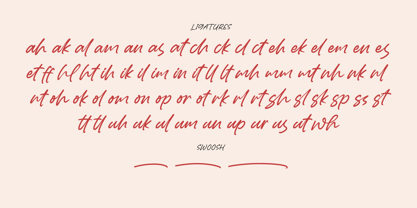 LIGATURES
ah ak al am an as at ch ck cl ct eh ek el em en es
et ff hl ht ih ik il im in it ll lt mh mm mt nh nk nl
nt oh ok ol om on op or ot rk rl rt sh sl sk sp ss st
tt tl uh uk ul um un up ur us ut wh
SWOOSH